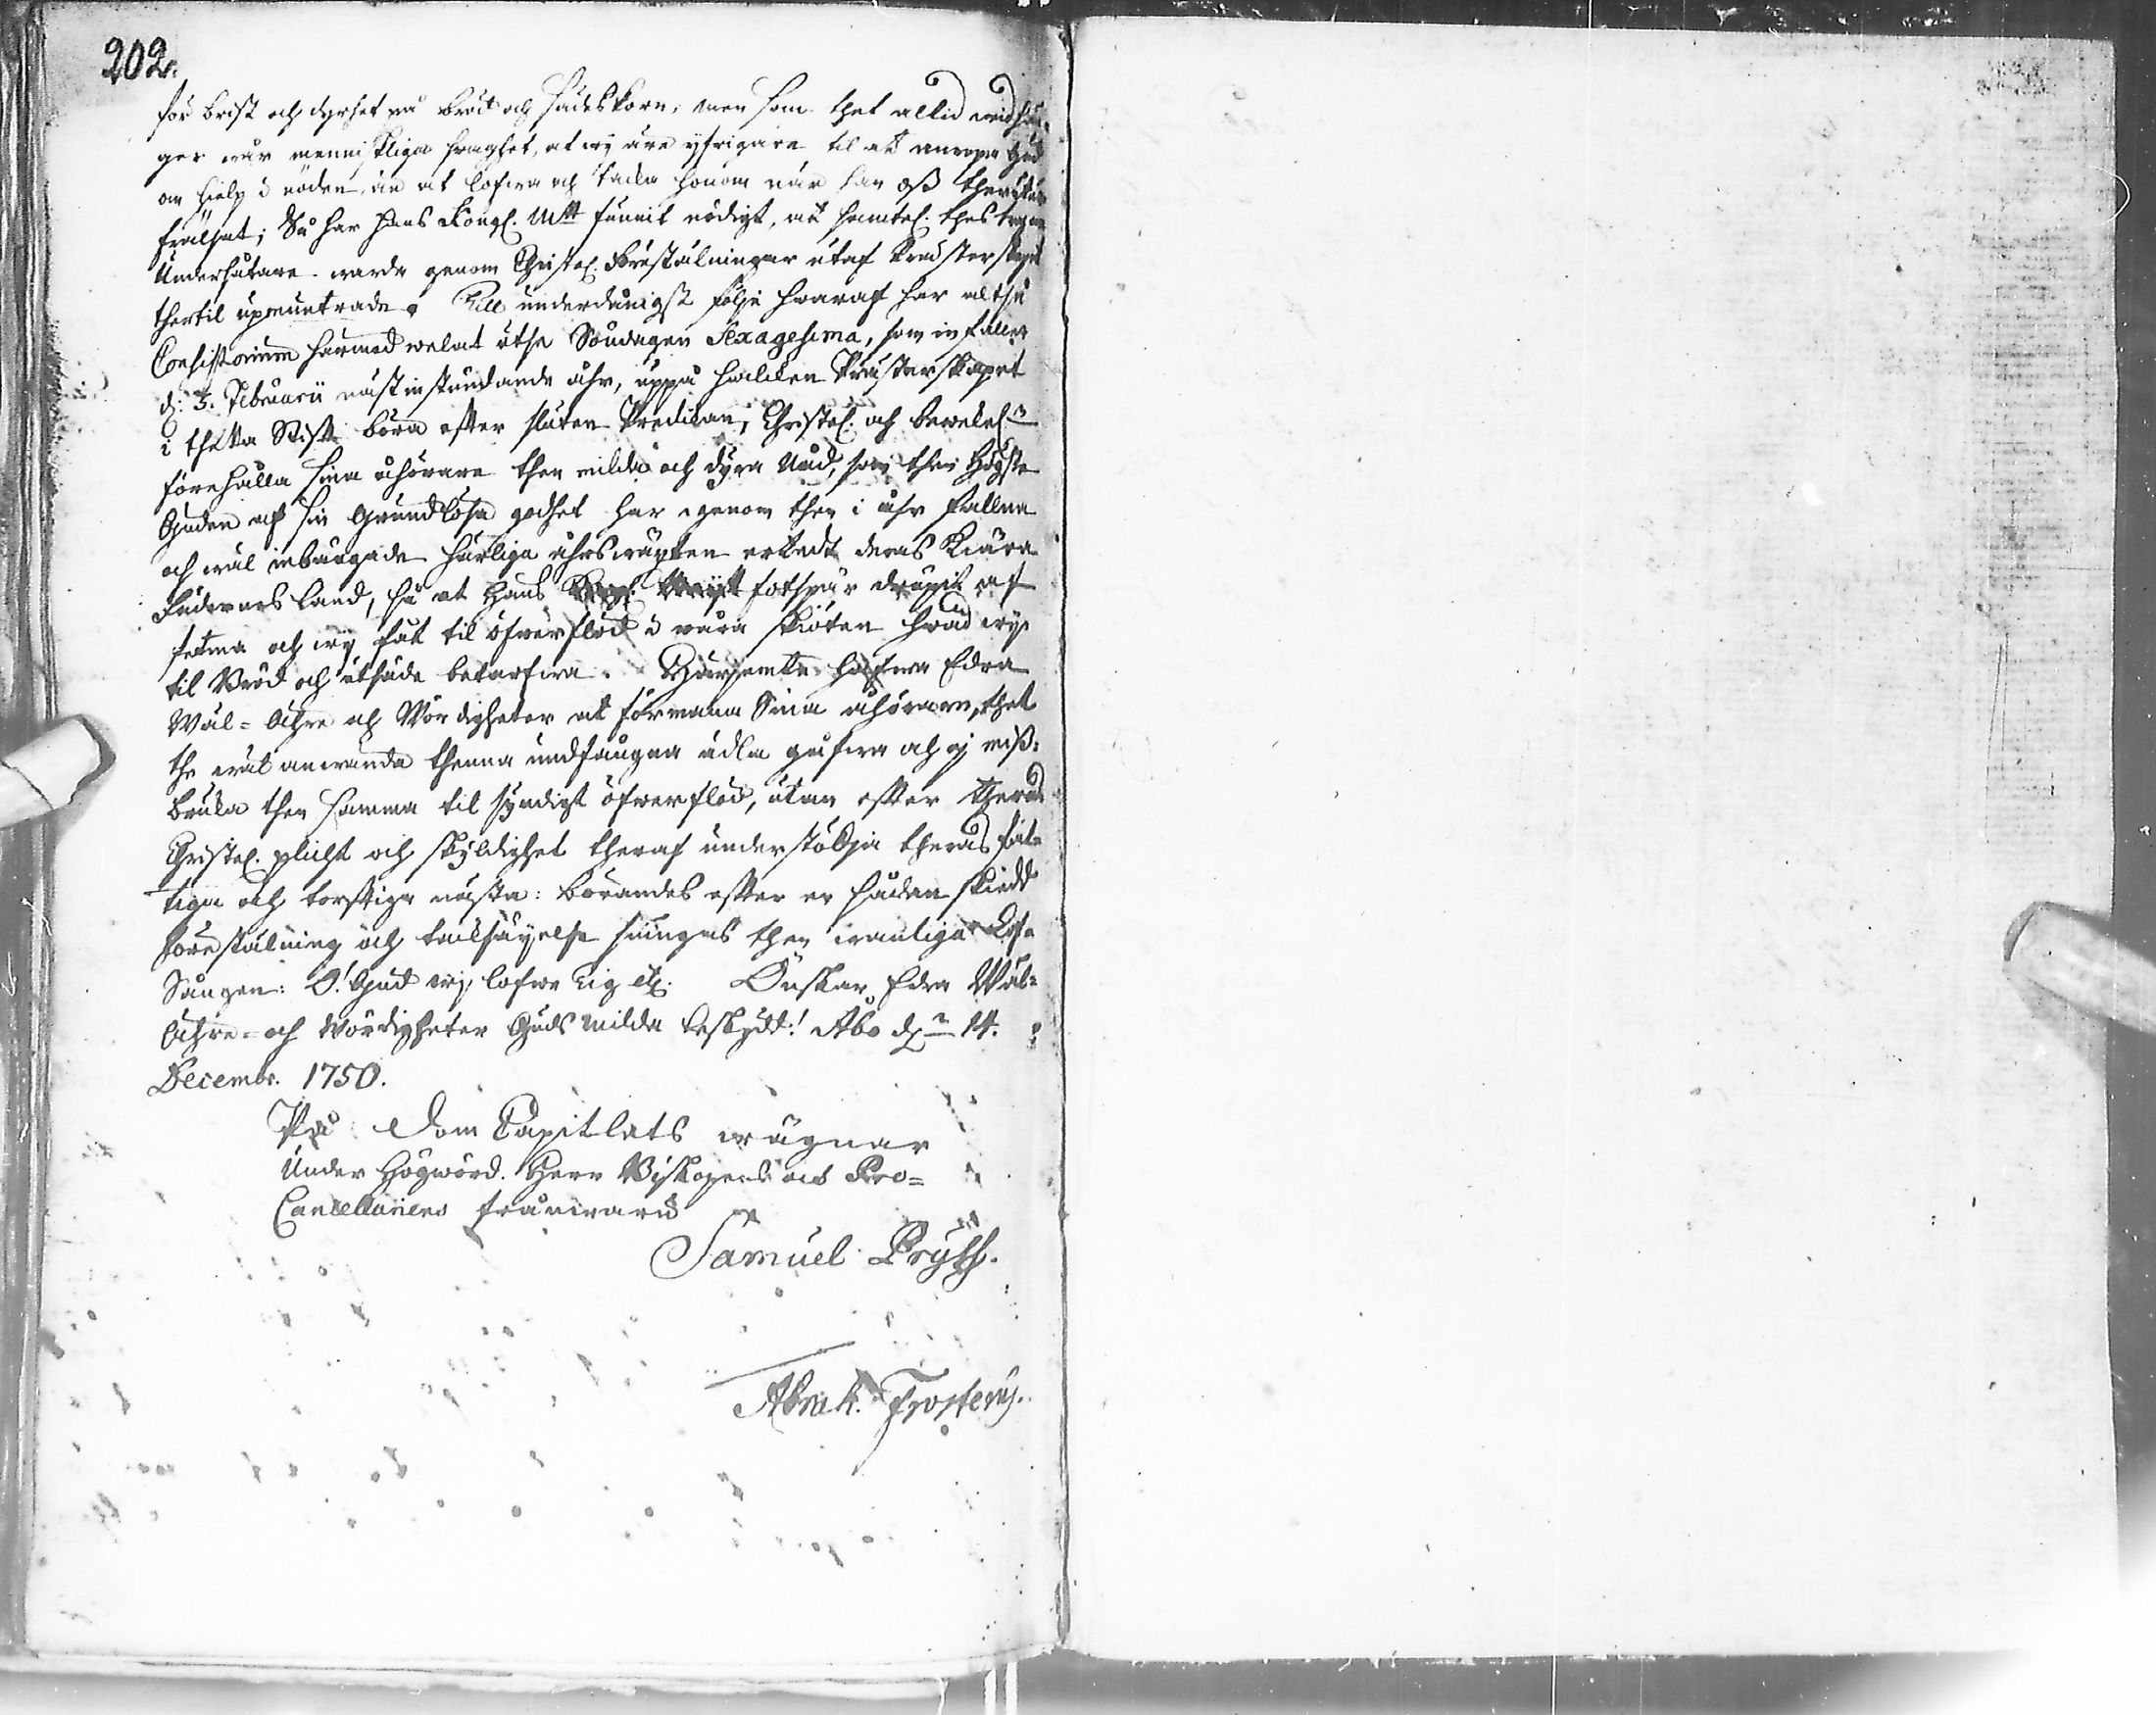 202.
för brist och dyrhet på bröd och sädeskorn; men som thet altid wid hän-
ger wår menniskliga swaghet, at wij äre yfrigare til at anropa Gud
om hielp i nöden, än at lofwa och tacka honom när han oss therutur
frälsat; Så har Hans Kongl. Mtt funnit nödigt, at samtel. thes trogne
Undersåtare warda genom Christel. Föreställningar utaf Presterskapet
thertil upmuntrade. Till underdånigst följe hwaraf har altså
Consistorium härmed welat utse Söndagen Sexagesima, som infaller
d. 3. Februarii nästinstundande åhr, uppå hwilken Prästerskapet
i thetta Stift böra efter sluten Predikan, Christel. och bewekel.n
förehålla sina åhörare then milda och dyra Nåd, som then Högste
Guden af sin grundlösa godhet har genom then i åhr fallna
och wäl inbärgade härliga åhrswäxten ertedt deras Kiära
Fädernesland, så at Hans fotspår drupit af
fetma och wij fått til öfwerflöd i wåra skiöten hwad wij
til Bröd och utsäde betarfwa. Härjemte hafwa Edra
Wäl-Ährw och Wördigheter at förmana Sina åhörare, thet
the wäl anwända thenna undfångna ädla gåfwa och ej miss-
bruka then samma til syndigt öfwerflöd, utan efter theras
Christel. plicht och skyldighet theraf understödja theras fat-
tiga och torftiga nästa: börandes efter en sådan skiedd
förestälning och tacksäyelse siungas then wanliga Lof-
Sången: O! Gud wij lofwe Tig etc. Önskar Edra Wäl-
Ährw- och Wördigheter Guds milda beskydd! Åbo d.n 14.
Decembr. 1750.
På Dom Capitlets wägnar
Under Högwörd. Herr Biskopens och Pro-
Cancellariens frånwaru
Samuel Pryss.
Abrah. Frosterus.